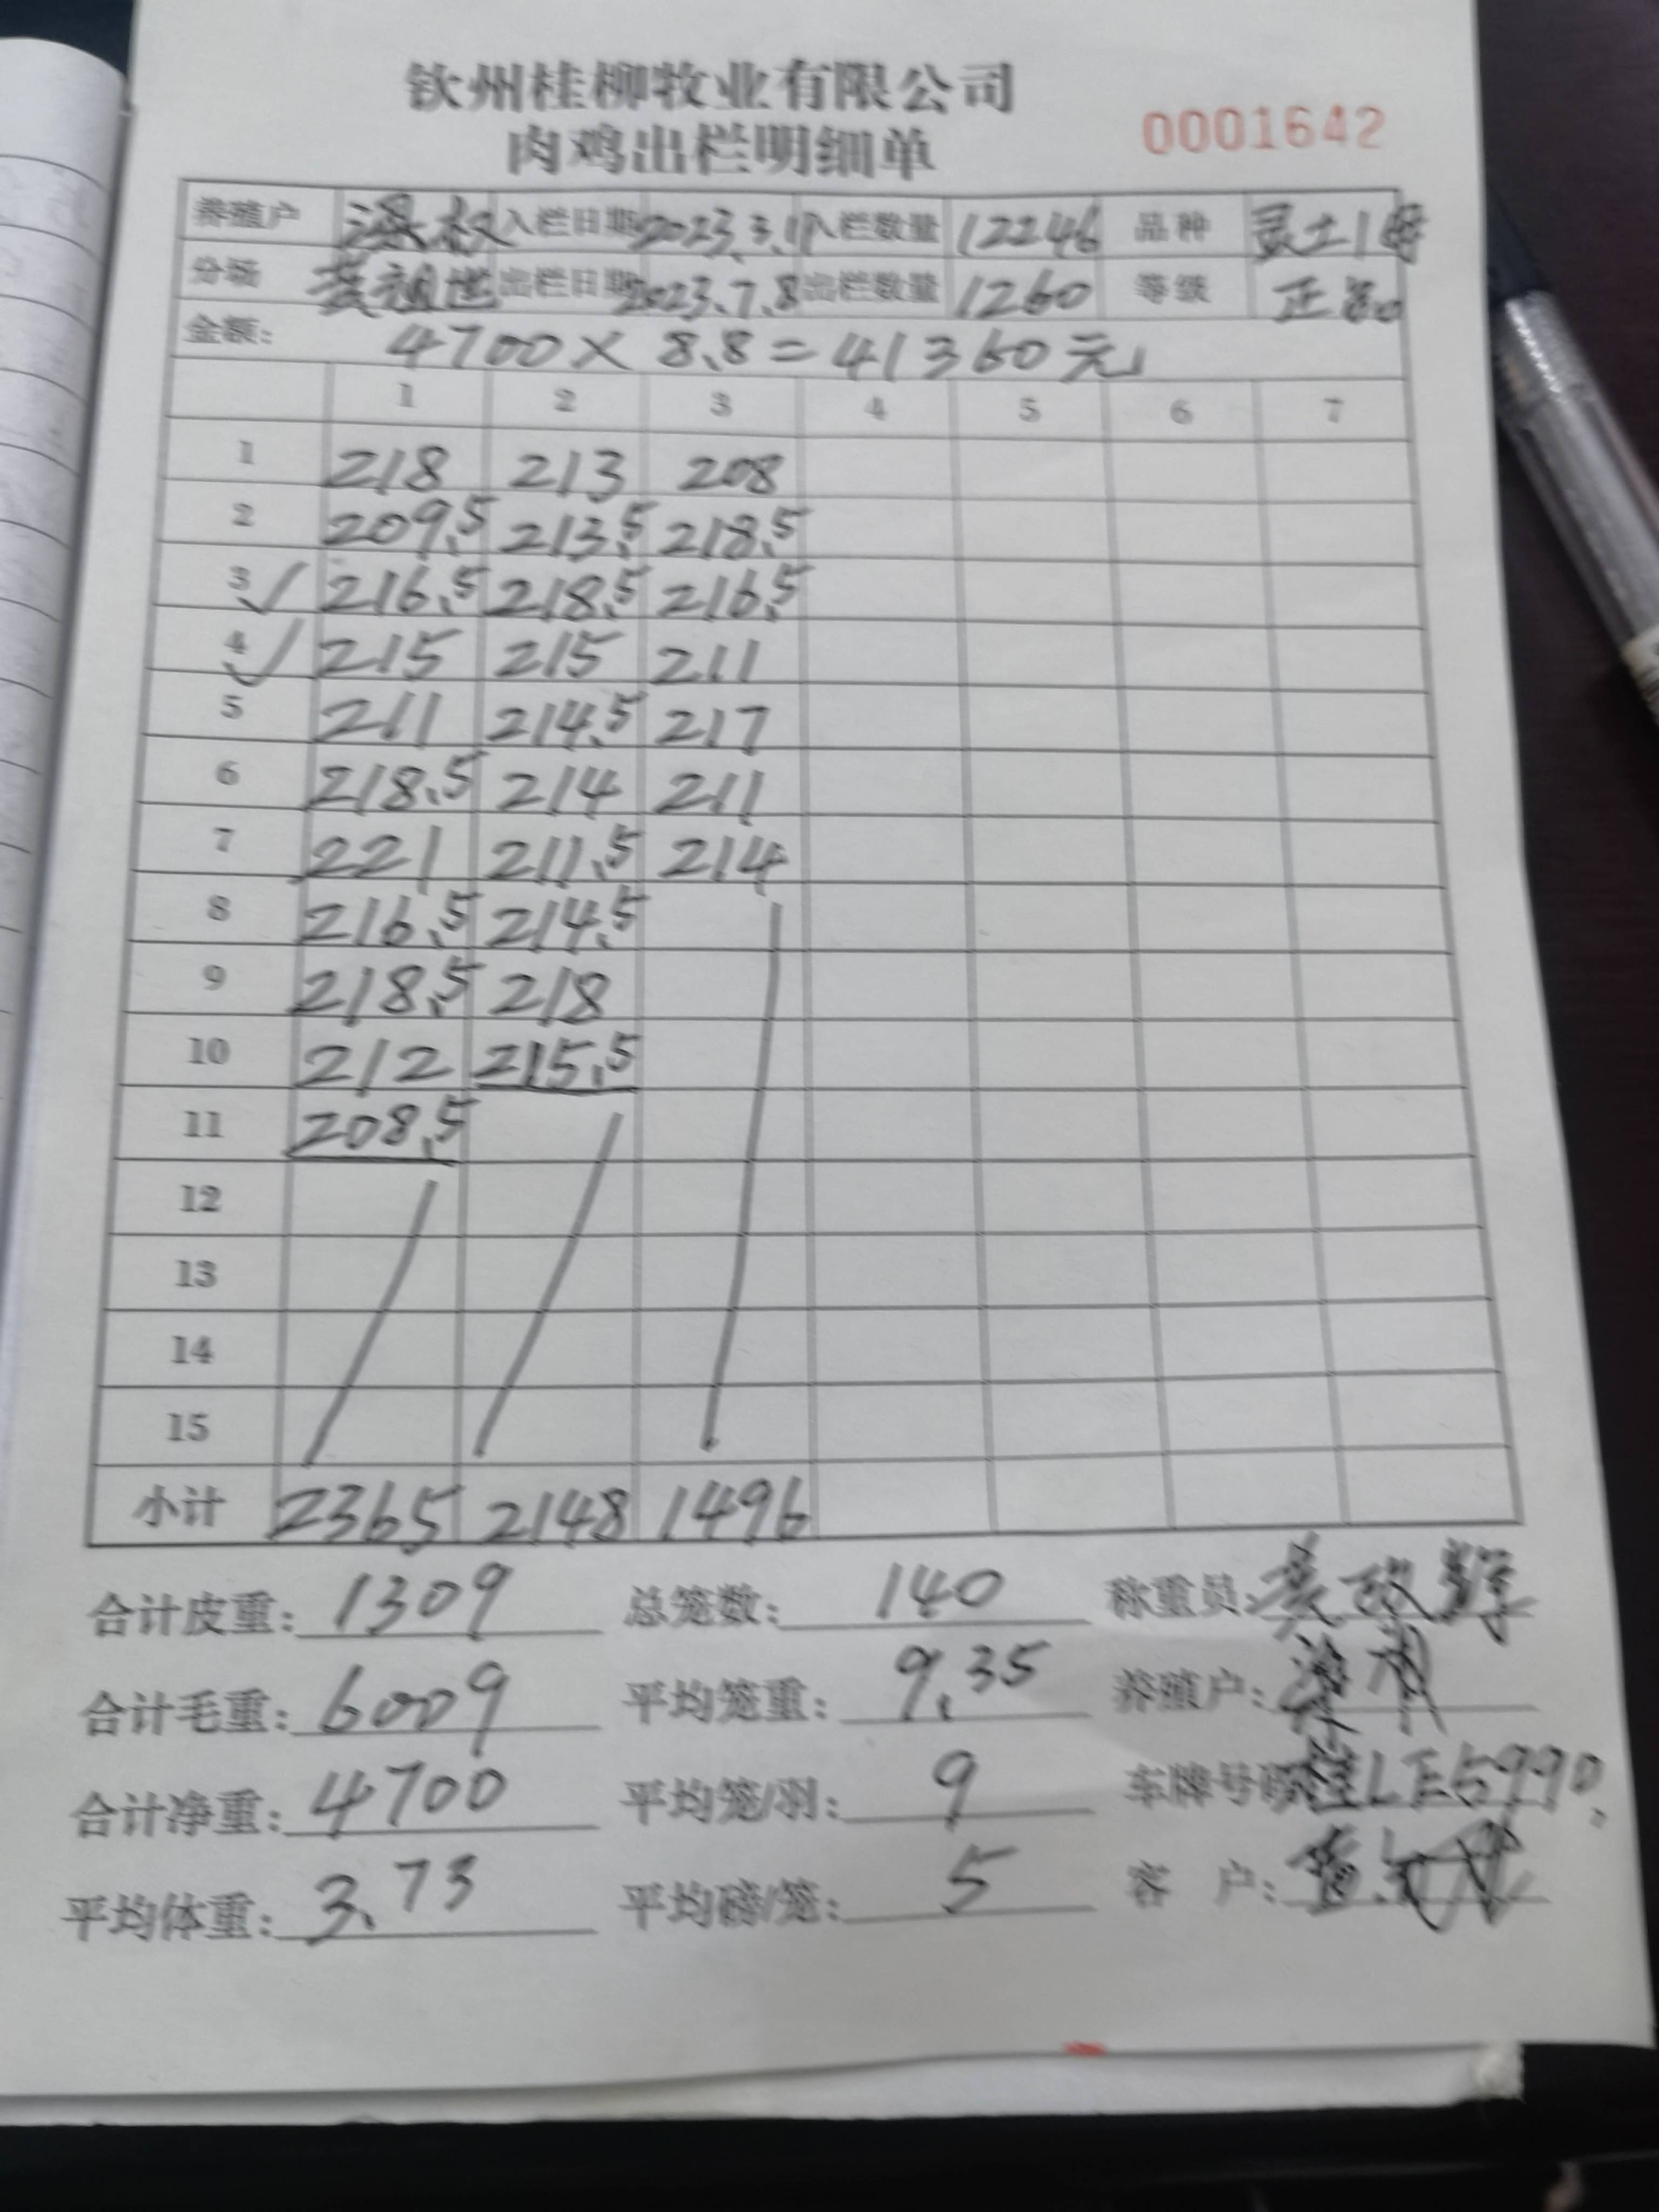 钦州桂柳牧业有限公司
肉鸡出栏明细单 0001642
养殖户 入栏日期 2023.3.1 入栏数量 12246 品种 灵土1母
分场 黄祖世 出栏日期 2023.7.8 出栏数量 1260 等级 正品
金额: 4700×8.8=41360元
1 2 3 4 5 6 7
1 218 213 208
2 209.5 213.5 218.5
3 ✓ 216.5 218.5 216.5
4 ✓ 215 215 211
5 211 214.5 217
6 218.5 214 211
7 221 211.5 214
8 216.5 214.5
9 218.5 218
10 212 215.5
11 208.5
12
13
14
15
小计 2365 2148 1496
合计皮重: 1309 总笼数: 140 称重员:
合计毛重: 6009 平均笼重: 9.35 养殖户:
合计净重: 4700 平均笼/羽: 9 车牌号码 桂LE5990
平均体重: 3.73 平均磅/笼: 5 客 户: